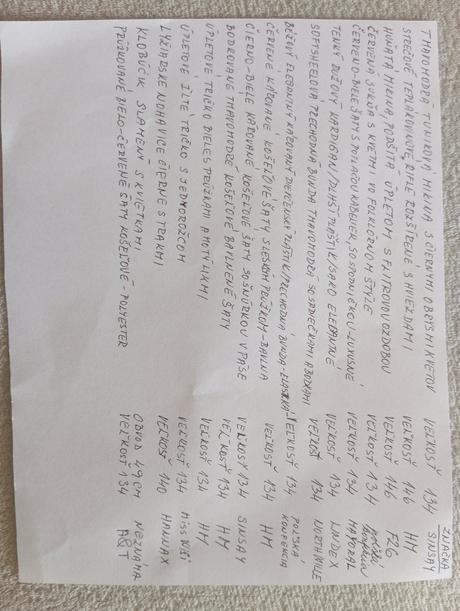 ZNAČKA
TMAVOMODRÁ TUNIKOVÁ MIKINA S ČIERNYMI OBRYSMI KVETOV VEĽKOSŤ 134 SINSAY
STREČOVÉ TEPLÁKOVINOVÉ RIFLE ROZŠÍRENÉ S HVIEZDAMI VEĽKOSŤ 146 HM
HUŇATÁ MIKINA, PODŠITÁ ÚPLETOM S FLITROVOU OZDOBOU VEĽKOSŤ 146
ČERVENÁ SUKŇA S KVETMI VO FOLKLÓRNOM ŠTÝLE VEĽKOSŤ 134
ČERVENO-BIELE ŠATY S POTLAČOU KABELIEK, SO SPODNIČKOU-LUXUSNÉ VEĽKOSŤ 134 MAYORAL
TENKÝ BÉŽOVÝ KARDIGAN/DLHŠÍ PLÁŠTIK/SAKO ELEGANTNÉ VEĽKOSŤ 134 LINDEX
SOFTSHEELOVA PRECHODNÁ BUNDA TMAVOMODRÁ SO SRDIEČKAMI A BODKAMI VEĽKOSŤ 134 NORTHVILLE
BÉŽOVÝ ELEGANTNÝ KÁROVANÝ DIEVČENSKÝ PLÁŠTIK/PRECHODNÁ BUNDA VEĽKOSŤ 134 POĽSKÁ KONFEKCIA
ČERVENÉ KÁROVANÉ KOŠEĽOVÉ ŠATY S LESKLÝM PRÚŽKOM-BAVLNA VEĽKOSŤ 134 HM
ČIERNO-BIELE KÁROVANÉ KOŠEĽOVÉ ŠATY SO ŠNÚRKOU V PÁSE VEĽKOSŤ 134 SINSAY
BODKOVANÉ TMAVOMODRÉ KOŠEĽOVÉ BAVLNENÉ ŠATY VEĽKOSŤ 134 HM
ÚPLETOVÉ TRIČKO BIELE S PRÚŽKAMI A MOTÝLIKMI VEĽKOSŤ 134 HM
ÚPLETOVÉ ŽLTÉ TRIČKO S JEDNOROŽCOM VEĽKOSŤ 134 MISS
LYŽIARSKE NOHAVICE ČIERNE S TRAKMI VEĽKOSŤ 140 HANNAX
KLOBÚČIK SLAMENÝ S KVIETKAMI OBVOD 49 CM NEZNÁMA
PRÚŽKOVANÉ BIELO-ČERVENÉ ŠATY KOŠEĽOVÉ-POLYESTER VEĽKOSŤ 134